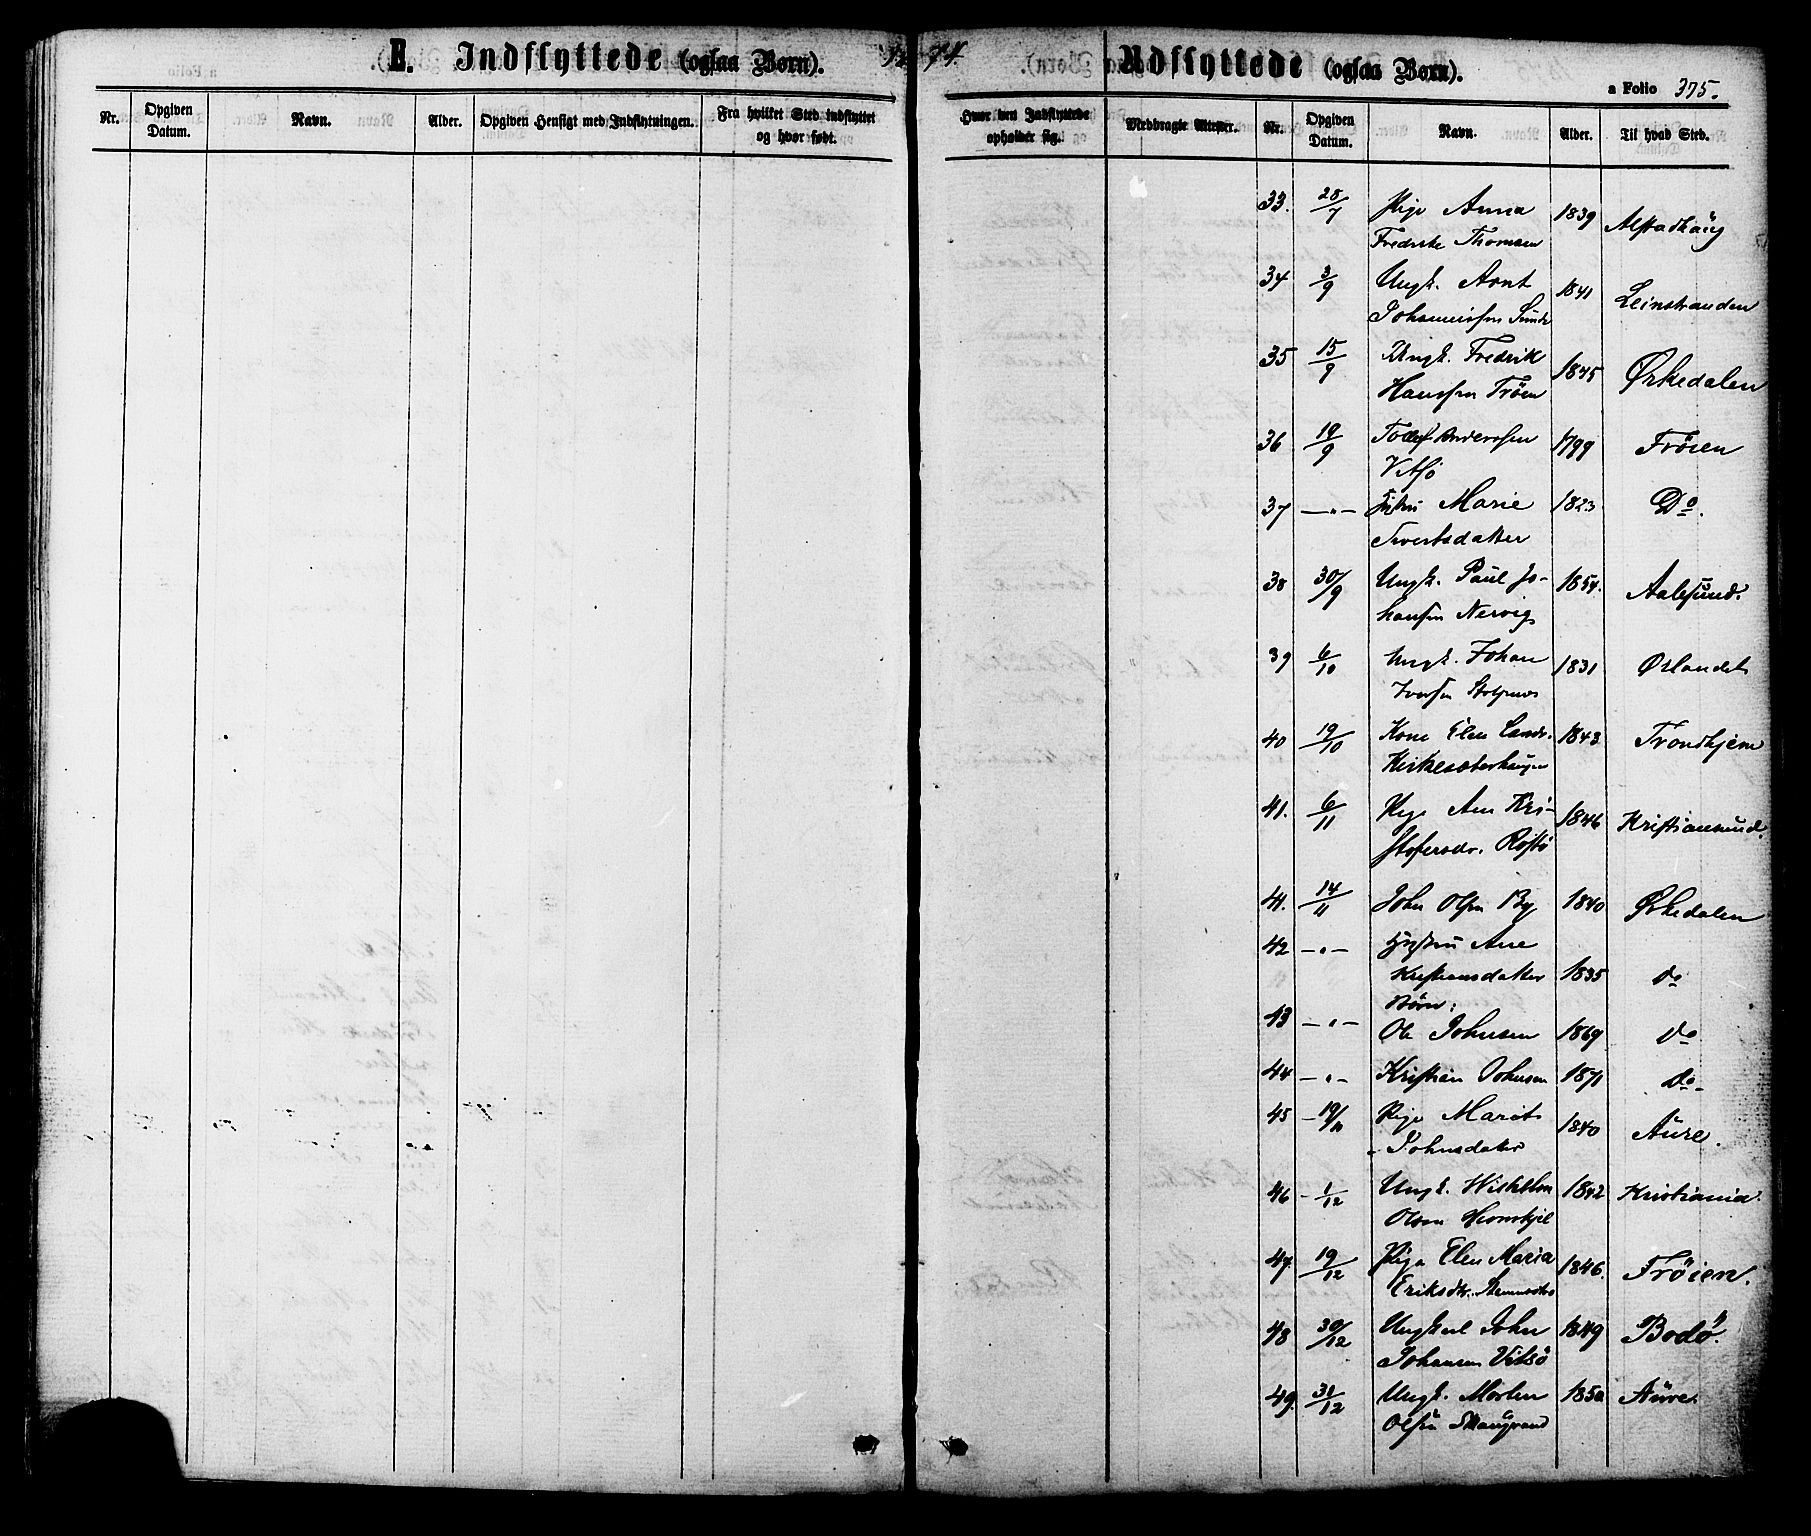 E. Indflyttede (ogsaa Børn). 74. Udflyttede (ogsaa Børn).
a Folio 375.
Nr. Opgiven Datum. Navn. Alder. Opgiven Hensigt med Indflytningen. Fra hvilket Sted indflyttet og hvor født. Hvor den Indflyttede opholder sig. Medbragte Attester. Nr. Opgiven Datum. Navn. Alder. Til hvad Sted.
33. 28/7 Pige Anna 1839 Alstadhaug
Fredrikke Thomsen
34 3/9 Ungk. Arnt 1841 Leinstranden
Johannessen Sunde
35 15/9 Ungk. Fredrik 1845 Ørkedalen
Hanssen Trøen
36 19/9 Tollef Anderssen 1799 Frøien
Vitsø
37 —"— Hustru Marie 1823 Do.
Sivertsdatter
38 30/9 Ungk. Paul Jo- 1854. Aalesund.
hansen Nervig
39 6/10 Ungk. Johan 1831 Ørlandet
Iversen
40 19/10 Kone Elen 1843 Trondhjem
Kirkesæterhaugen
41. 6/11 Pige Ane Kri- 1846 Kristiansund.
stofersdr. Røstø
41. 14/11 John Olsen By 1840 Ørkedalen
42 —"— Hustru Ane
Kristiansdatter 1835 do
Børn:
43 —"— Ole Johnsen 1869 do
44 —"— Kristian Johnsen 1871 do-
45 — 19/11 Pige Marit 1840 Aure.
Johnsdatter
46 — 1/12 Ungk. 1842 Kristiania.
Olsen
47. 19/12 Pige Elen Maria 1846. Frøien.
Eriksdtr.
48 30/12 Ungkarl John 1849 Bodø.
Johansen Vitsø
49. 31/12 Ungk. Morten 1850 Aure.
Olsen